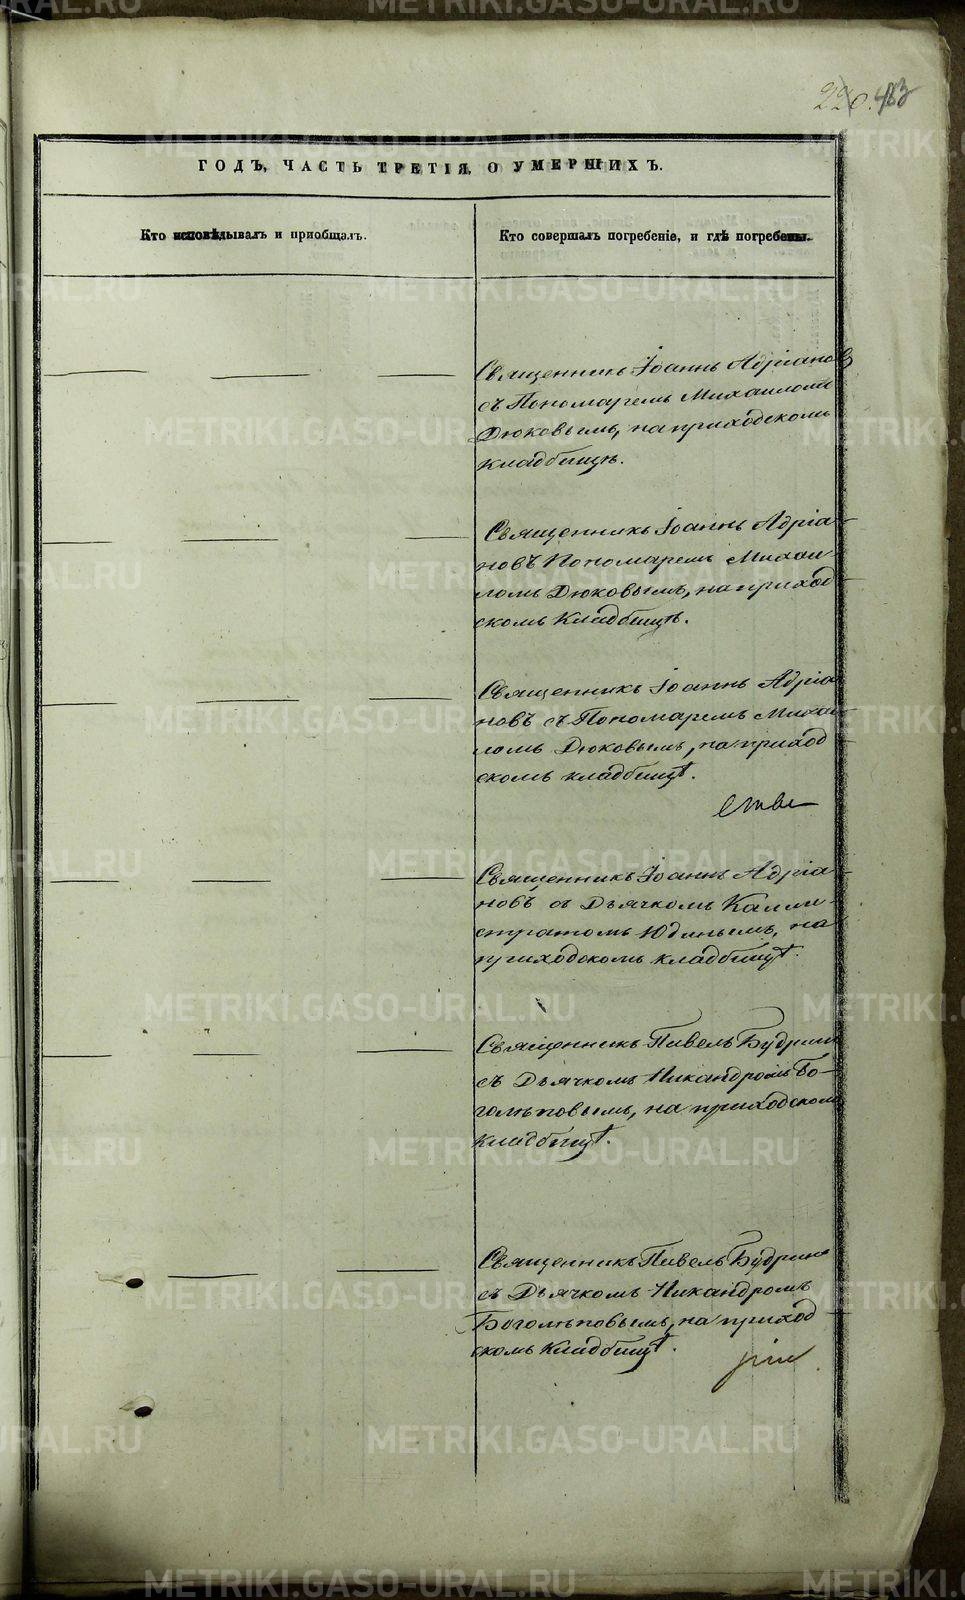 220. 483
ГОДЪ, ЧАСТЬ ТРЕТІЯ, О УМЕРШИХЪ.
Кто исповѣдывалъ и пріобщалъ.
Кто совершалъ погребеніе, и гдѣ погребены.
Священникъ Іоаннъ Адріановъ
съ Пономаремъ Михаиломъ
Дюковымъ, на приходскомъ
кладбищѣ.
Священникъ Іоаннъ Адріа-
новъ Пономаремъ Михаи-
ломъ Дюковымъ, на приход-
скомъ Кладбищѣ.
Священникъ Іоаннъ Адріа-
новъ съ Пономаремъ Михаи-
ломъ Дюковымъ, на приход-
скомъ кладбищѣ.
Священникъ Іоаннъ Адріа-
новъ съ Дьячкомъ Калли-
стратомъ Юдинымъ, на
приходскомъ кладбищѣ.
Священникъ Павелъ Будринъ
съ Дьячкомъ Никандромъ Бо-
голѣповымъ, на приходскомъ
кладбищѣ.
Священникъ Павелъ Будринъ
съ Дьячкомъ Никандромъ
Боголѣповымъ, на приход
скомъ Кладбищѣ.
METRIKI.GASO-URAL.RU